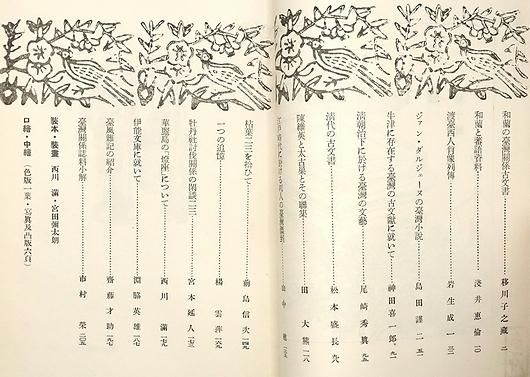 和蘭の臺灣關係古文書 移川子之藏 二
和蘭と蕃語資料 淺井惠倫 一〇
渡臺西人自傳列傳 岩生成一 三一
ジァン・ダルジェーヌの臺灣小說 島田謹二 五一
牛津に存在する臺灣の古文獻に就いて 神田喜一郎 九一
淸朝治下に於ける臺灣の文藝 尾崎秀眞 九五
淸代の古文書 松本盛長 九八
陳維英と太古巢とその聯集 田大熊 一一八
江戸時代に於ける邦人の臺灣 山中樵
枯葉二三を拾ひて 前島信次 一四九
一つの追憶 楊雲萍 一六九
牡丹社討伐關係の閑談二三 宮本延人 一七三
華麗島の「燈座」について 西川滿 一七九
伊能文庫に就いて 淵脇英雄 一八七
臺風雜記の紹介 齋藤才助 一九七
臺灣關係誌料小解 市村榮 二〇五
裝本・裝畫 西川滿・宮田彌太朗
口繪・中繪(色版一葉・寫眞及凸版六頁)